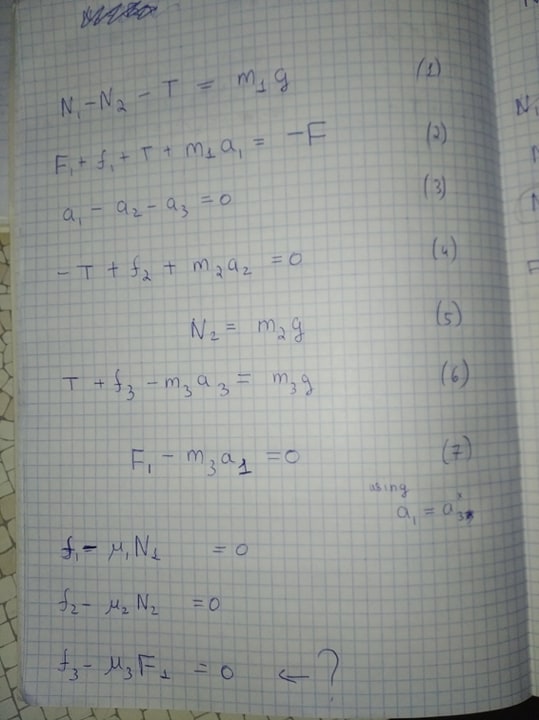 N₁ - N₂ - T = m₁g (1)
F₁ + f₁ + T + m₁a₁ = -F (2)
a₁ - a₂ - a₃ = 0 (3)
-T + f₂ + m₂a₂ = 0 (4)
N₂ = m₂g (5)
T + f₃ - m₃a₃ = m₃g (6)
F₁ - m₃a₁ = 0 (7)
using
a₁ = a₃ˣ
f₁ - μ₁N₁ = 0
f₂ - μ₂N₂ = 0
f₃ - μ₃F₁ = 0 ← ?